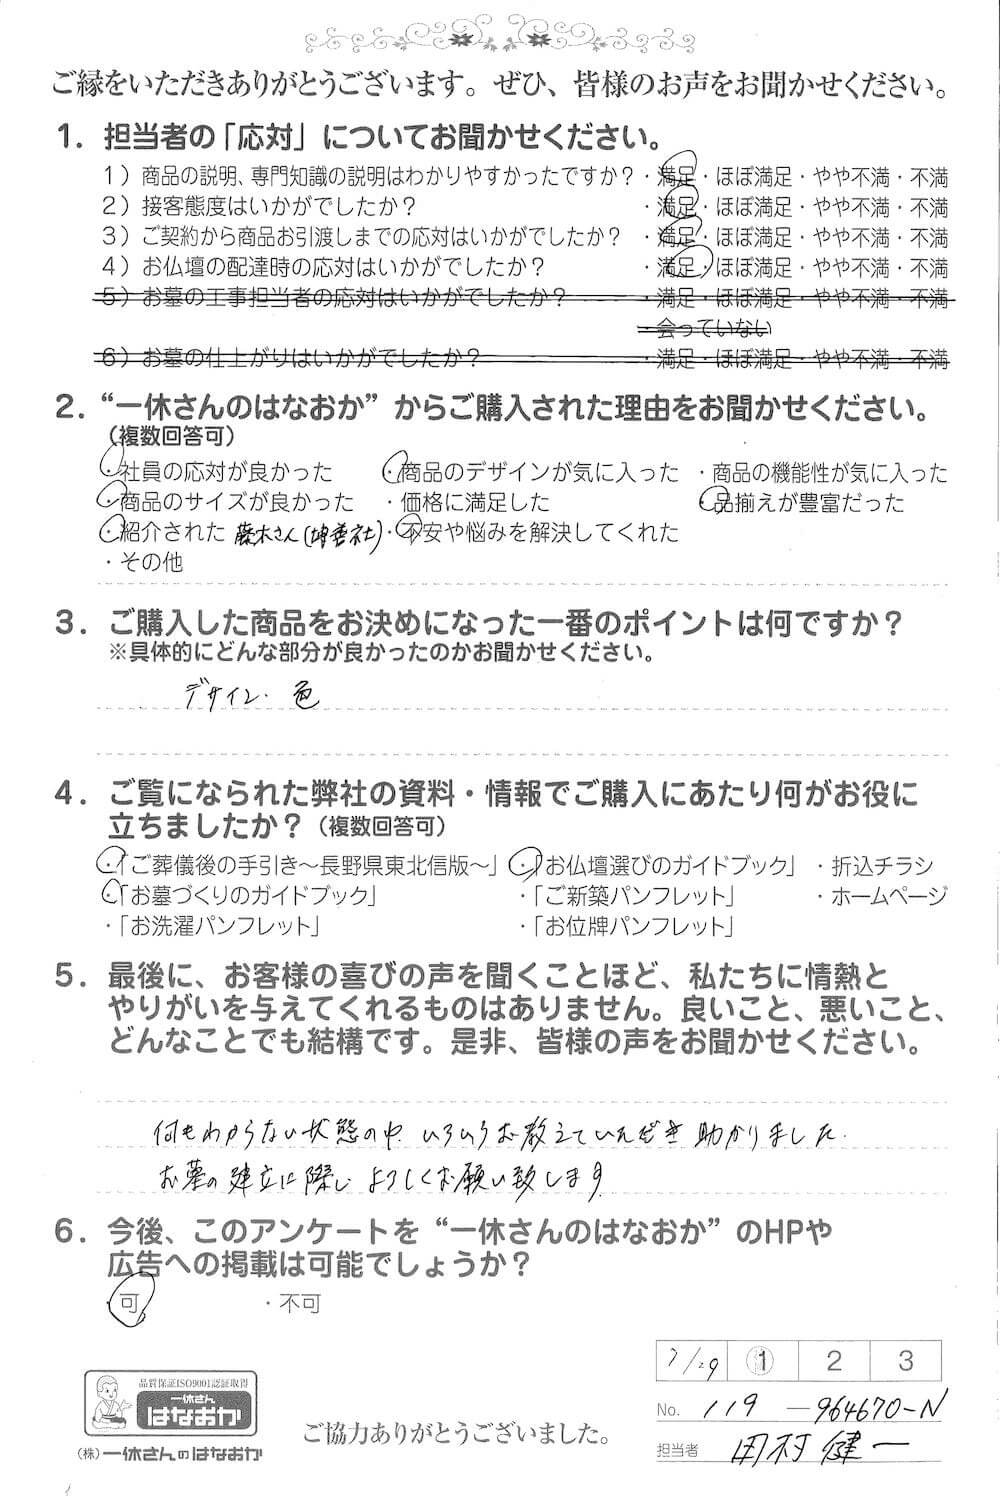 ご縁をいただきありがとうございます。ぜひ、皆様のお声をお聞かせください。
1．担当者の「応対」についてお聞かせください。
1）商品の説明、専門知識の説明はわかりやすかったですか？・満足・ほぼ満足・やや不満・不満
2）接客態度はいかがでしたか？・満足・ほぼ満足・やや不満・不満
3）ご契約から商品お引渡しまでの応対はいかがでしたか？・満足・ほぼ満足・やや不満・不満
4）お仏壇の配達時の応対はいかがでしたか？・満足・ほぼ満足・やや不満・不満
5）お墓の工事担当者の応対はいかがでしたか？・満足・ほぼ満足・やや不満・不満
・会っていない
6）お墓の仕上がりはいかがでしたか？・満足・ほぼ満足・やや不満・不満
2．“一休さんのはなおか”からご購入された理由をお聞かせください。
（複数回答可）
・社員の応対が良かった ・商品のデザインが気に入った ・商品の機能性が気に入った
・商品のサイズが良かった ・価格に満足した ・品揃えが豊富だった
・紹介された 藤木さん ・不安や悩みを解決してくれた
・その他
3．ご購入した商品をお決めになった一番のポイントは何ですか？
※具体的にどんな部分が良かったのかお聞かせください。
デザイン・色
4．ご覧になられた弊社の資料・情報でご購入にあたり何がお役に
立ちましたか？（複数回答可）
・「ご葬儀後の手引き～長野県東北信版～」 ・「お仏壇選びのガイドブック」 ・折込チラシ
・「お墓づくりのガイドブック」 ・「ご新築パンフレット」 ・ホームページ
・「お洗濯パンフレット」 ・「お位牌パンフレット」
5．最後に、お客様の喜びの声を聞くことほど、私たちに情熱と
やりがいを与えてくれるものはありません。良いこと、悪いこと、
どんなことでも結構です。是非、皆様の声をお聞かせください。
何もわからない状態の中、いろいろお教えていただき助かりました.
お墓の建立に際し よろしくお願い致します
6．今後、このアンケートを“一休さんのはなおか”のHPや
広告への掲載は可能でしょうか？
・可 ・不可
7/29 1 2 3
品質保証ISO9001認証取得
一休さん
はなおか
No. 119 -964670-N
ご協力ありがとうございました。
（株）一休さんのはなおか
担当者 田村健一